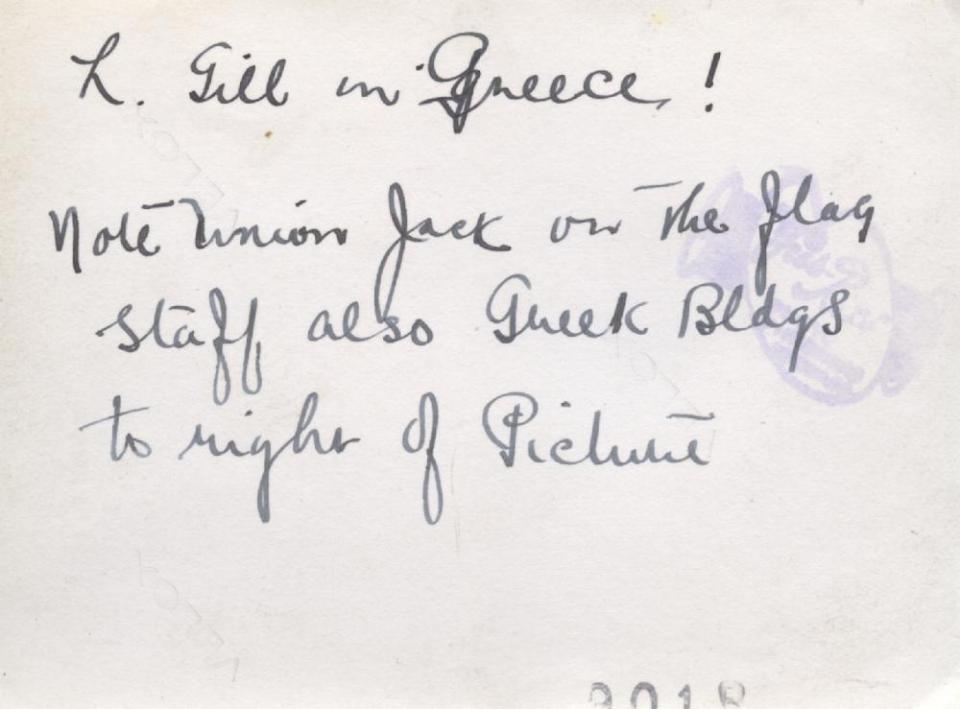 L. Gill in Greece!
Note Union Jack on the flag
staff, also Greek Bldgs
to right of Picture